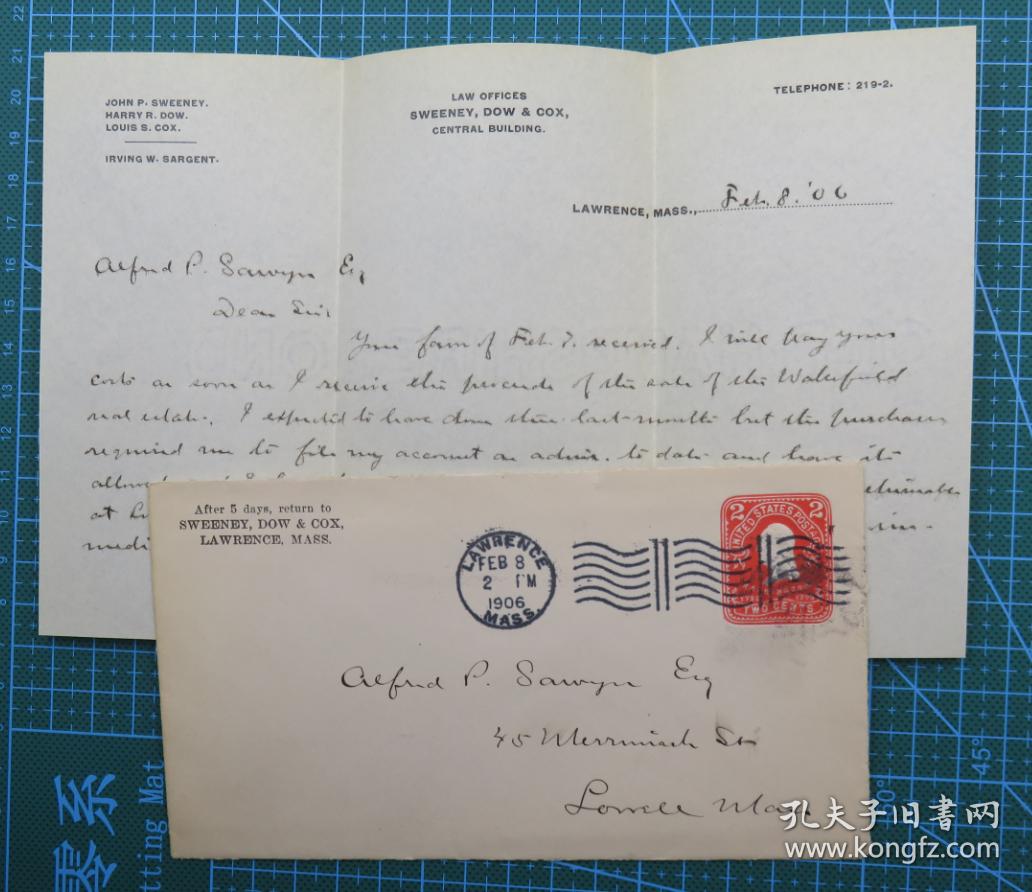 JOHN P. SWEENEY.
HARRY R. DOW.
LOUIS S. COX.
IRVING W. SARGENT.
LAW OFFICES
SWEENEY, DOW & COX,
CENTRAL BUILDING.
TELEPHONE: 219-2.
LAWRENCE, MASS., Feb. 8. '06
Alfred P. Sawyer Esq
Dear Sir:
Your favor of Feb. 7. received. I will pay your
costs as soon as I receive the proceeds of the sale of the Wakefield
real estate. I expected to have done this last month but the purchaser
required me to file my account as admin. to date and have its
allowed
at
medi
im-
After 5 days, return to
SWEENEY, DOW & COX,
LAWRENCE, MASS.
LAWRENCE
FEB 8
2 PM
1906
MASS.
2 UNITED STATES POSTAGE 2
TWO CENTS
Alfred P. Sawyer Esq
45 Merrimack St
Lowell Mass
22
21
20
19
18
17
16
15
14
13
12
11
10
9
8
7
6
5
4
3
2
1
0
45°
tting Mat
孔夫子旧書网
www.kongfz.com